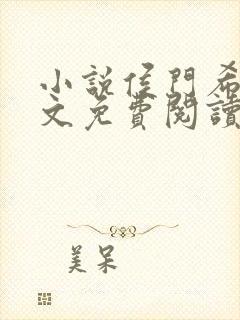 小說侯門希
文免費閱讀
美呆